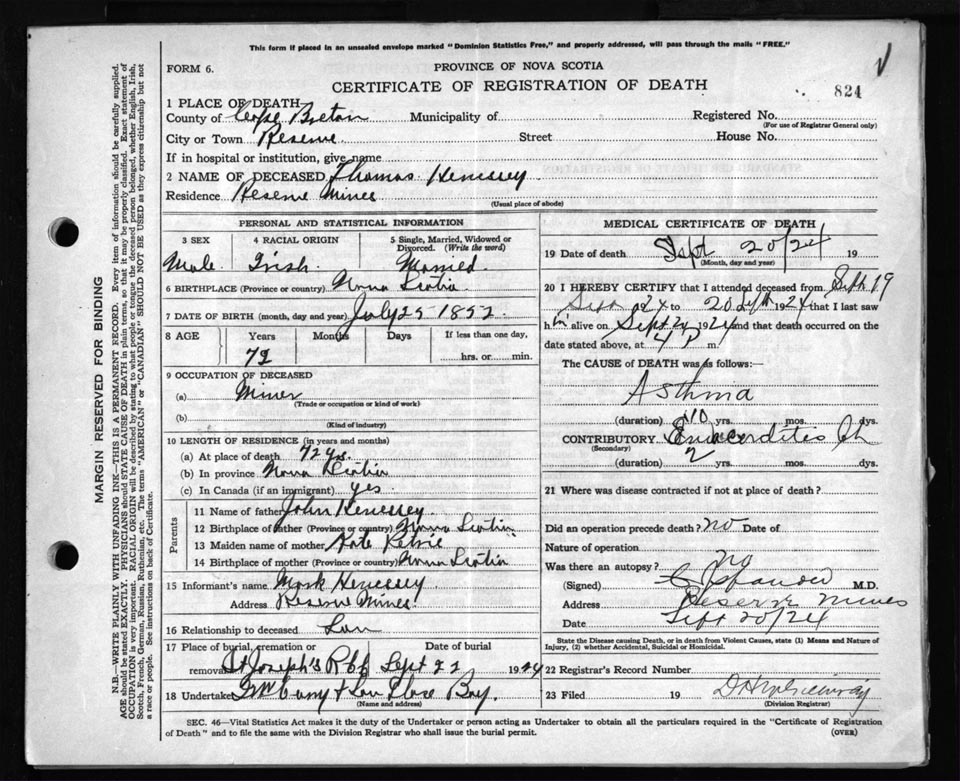 This form if placed in an unsealed envelope marked "Dominion Statistics Free," and properly addressed, will pass through the mails "FREE."
FORM 6.
PROVINCE OF NOVA SCOTIA
CERTIFICATE OF REGISTRATION OF DEATH
824
1 PLACE OF DEATH
County of Cape Breton Municipality of Registered No.
(For use of Registrar General only)
City or Town Reserve Street House No.
If in hospital or institution, give name
2 NAME OF DECEASED Thomas Henessey
Residence Reserve Mines
(Usual place of abode)
PERSONAL AND STATISTICAL INFORMATION
3 SEX 4 RACIAL ORIGIN 5 Single, Married, Widowed or Divorced. (Write the word)
Male Irish Married
6 BIRTHPLACE (Province or country) Nova Scotia
7 DATE OF BIRTH (month, day and year) July 25 1852
8 AGE Years Months Days If less than one day,
72 hrs. or min.
9 OCCUPATION OF DECEASED
(a) Miner
(Trade or occupation or kind of work)
(b)
(Kind of industry)
10 LENGTH OF RESIDENCE (in years and months)
(a) At place of death 72 yrs.
(b) In province Nova Scotia
(c) In Canada (if an immigrant) yes
Parents
11 Name of father John Henessey
12 Birthplace of father (Province or country) Nova Scotia
13 Maiden name of mother Kate
14 Birthplace of mother (Province or country) Nova Scotia
15 Informant's name Mark Henessey
Address Reserve Mines
16 Relationship to deceased Son
17 Place of burial, cremation or Date of burial
removal St Joseph's Sept 22 1924
18 Undertaker & Son Glace Bay
(Name and address)
MEDICAL CERTIFICATE OF DEATH
19 Date of death Sept 20/24 19
(Month, day and year)
20 I HEREBY CERTIFY that I attended deceased from Sept 19
Sept 1924 to 20 Sept 1924 that I last saw
him alive on Sept 1924 and that death occurred on
date stated above, at 4 P m.
The CAUSE of DEATH was as follows:
Asthma
(duration) 10 yrs. mos. dys.
CONTRIBUTORY Endocarditis Ch
(Secondary)
(duration) 2 yrs. mos. dys.
21 Where was disease contracted if not at place of death?
Did an operation precede death? no Date of
Nature of operation
Was there an autopsy? no
(Signed) M.D.
Address Reserve Mines
Date Sept 20/24
State the Disease causing Death, or in death from Violent Causes, state (1) Means and Nature of Injury, (2) whether Accidental, Suicidal or Homicidal.
22 Registrar's Record Number
23 Filed 19
(Division Registrar)
SEC. 46—Vital Statistics Act makes it the duty of the Undertaker or person acting as Undertaker to obtain all the particulars required in the "Certificate of Registration
of Death" and to file the same with the Division Registrar who shall issue the burial permit. (OVER)
MARGIN RESERVED FOR BINDING
N.B.—WRITE PLAINLY WITH UNFADING INK—THIS IS A PERMANENT RECORD. Every item of information should be carefully supplied.
AGE should be stated EXACTLY. PHYSICIANS should STATE CAUSE OF DEATH in plain terms, so that it may be properly classified. Exact statement of
OCCUPATION is very important. RACIAL ORIGIN will be described by stating to what people or tongue the deceased person belonged, whether English, Irish,
Scotch, French, German, Russian, Ruthenian, etc. The terms "AMERICAN" or "CANADIAN" SHOULD NOT BE USED as they express citizenship but not
a race or people. See instructions on back of Certificate.